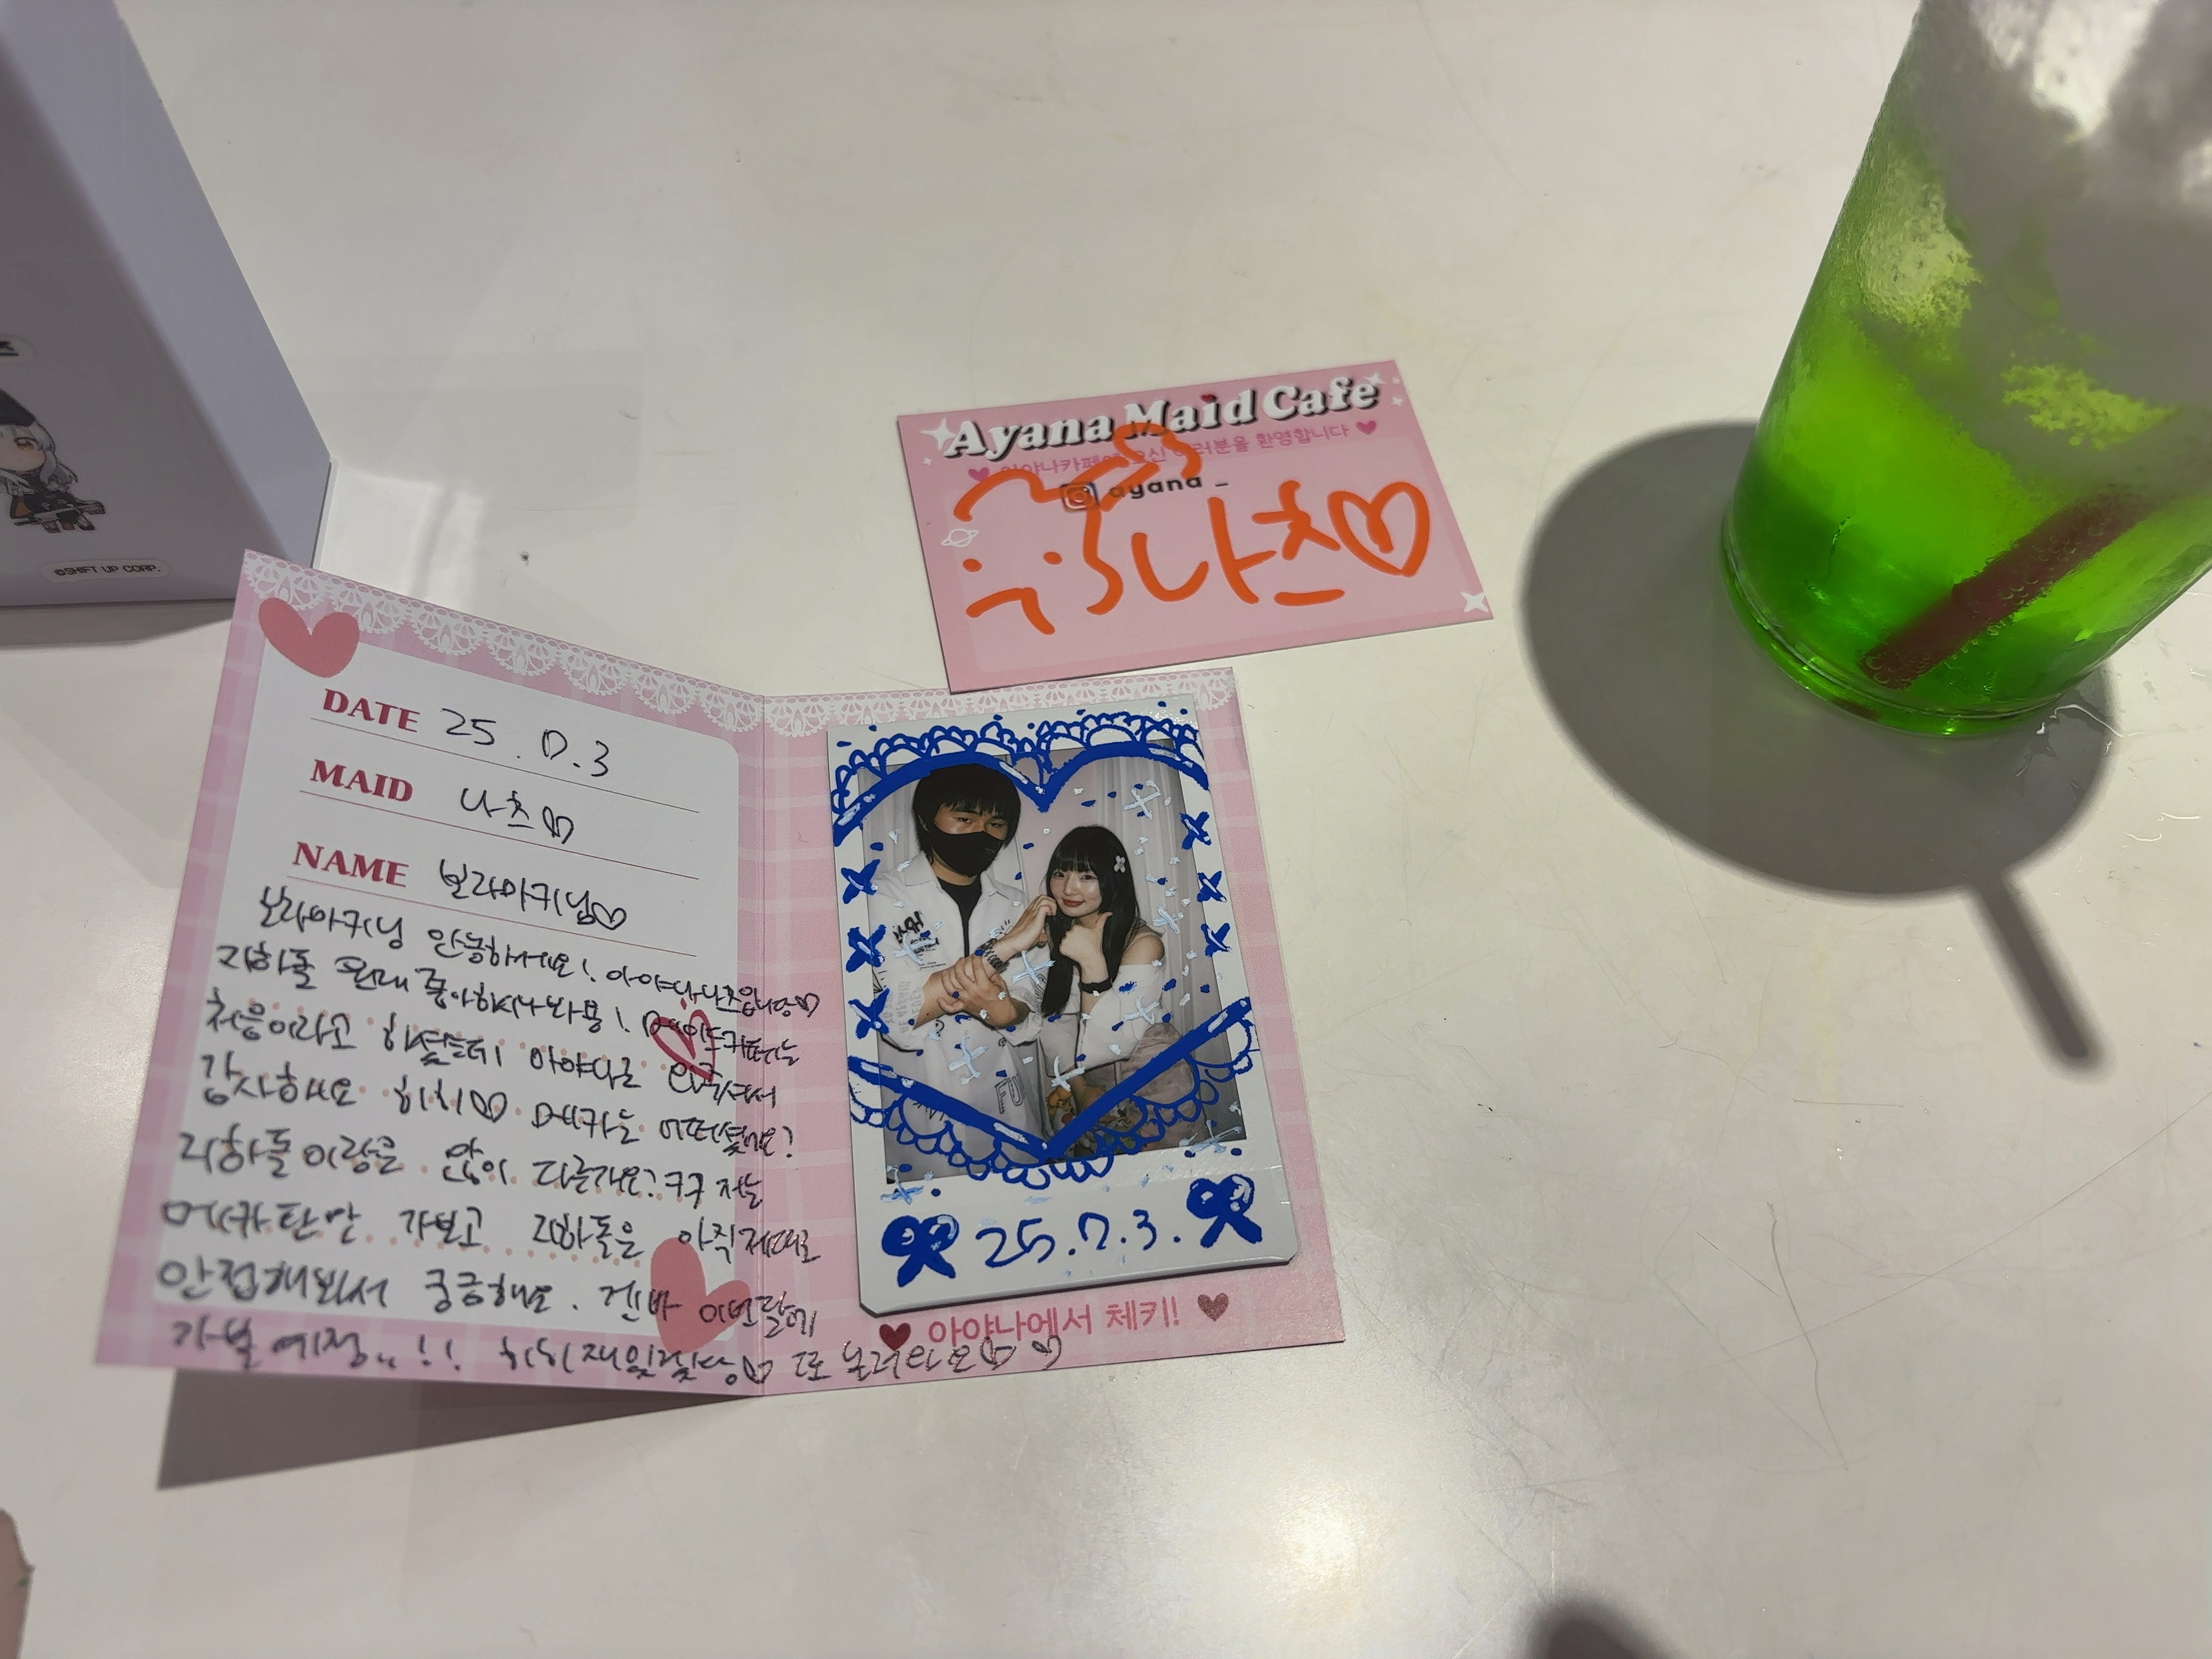 ©SHIFT UP CORP.
Ayana Maid Cafe
아야나카페에 오신 여러분을 환영합니다
ayana _
나츠♡
DATE 25.7.3
MAID 나츠♡
NAME 보라아키님♡
보라아키님 안녕하세요! 아야나 나츠입니당♡
지하돌 원래 좋아하시나봐용! 메이드카페는
처음이라고 하셨는데 아야나로 와주셔서
감사해요 히히♡ 메카는 어떠셨나요?
지하돌이랑은 많이 다른가요? ㅋㅋ 저는
메카탄만 가보고 지하돌은 아직 제대로
안접해봐서 궁금해요. 겐바 이번달에
가볼 예정..!! 히히 재밌겠당♡ 또 놀러와요♡♡
25.7.3.
아야나에서 체키!